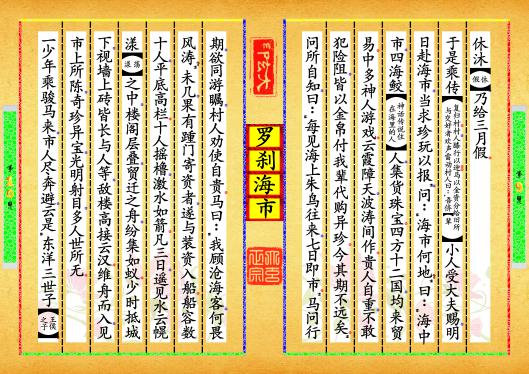 休沐【休假】乃给三月假
于是乘传【复归村村人膝行以迎马以金资分给旧所与交好者欢声雷动村人曰吾侪【辈】】小人受大夫赐明
日赴海市当求珍玩以报问：海市何地曰：海中
市四海鲛【神话传说住在海里的人】人集货珠宝四方十二国均来贸
易中多神人游戏云霞障天波涛间作贵人自重不敢
犯险阻皆以金帛付我辈代购异珍今其期不远矣
问所自知曰：每见海上朱鸟往来七日即市马问行
罗刹海市
期欲同游瞩村人劝使自贵马曰：我顾沧海客何畏
风涛未几果有踵门寄资者遂与装资入船船容数
十人平底高栏十人摇橹激水如箭凡三日遥见水云幌
漾【荡漾】之中楼阁层叠贸迁之舟纷集如蚁少时抵城
下视墙上砖皆长与人等敌楼高接云汉维舟而入见
市上所陈奇珍异宝光明射目多人世所无
一少年乘骏马来市人尽奔避云是东洋三世子【王侯之子】